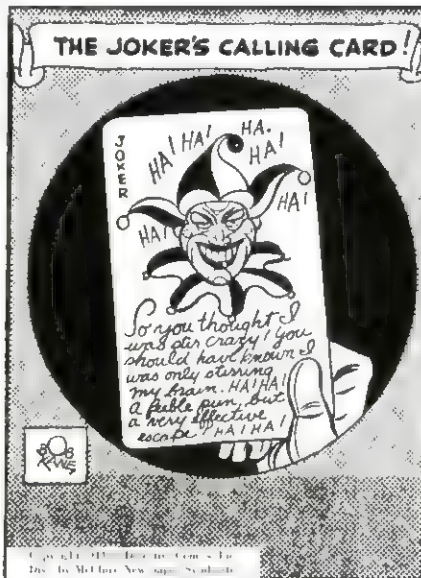 THE JOKER'S CALLING CARD!
JOKER
HA! HA!
HA.
HA!
HA!
HA!
So you thought I
was stir crazy! You
should have known I
was only stirring
my brain. HA! HA!
A feeble pun, but
a very effective
escape! HA! HA!
BOB
KANE